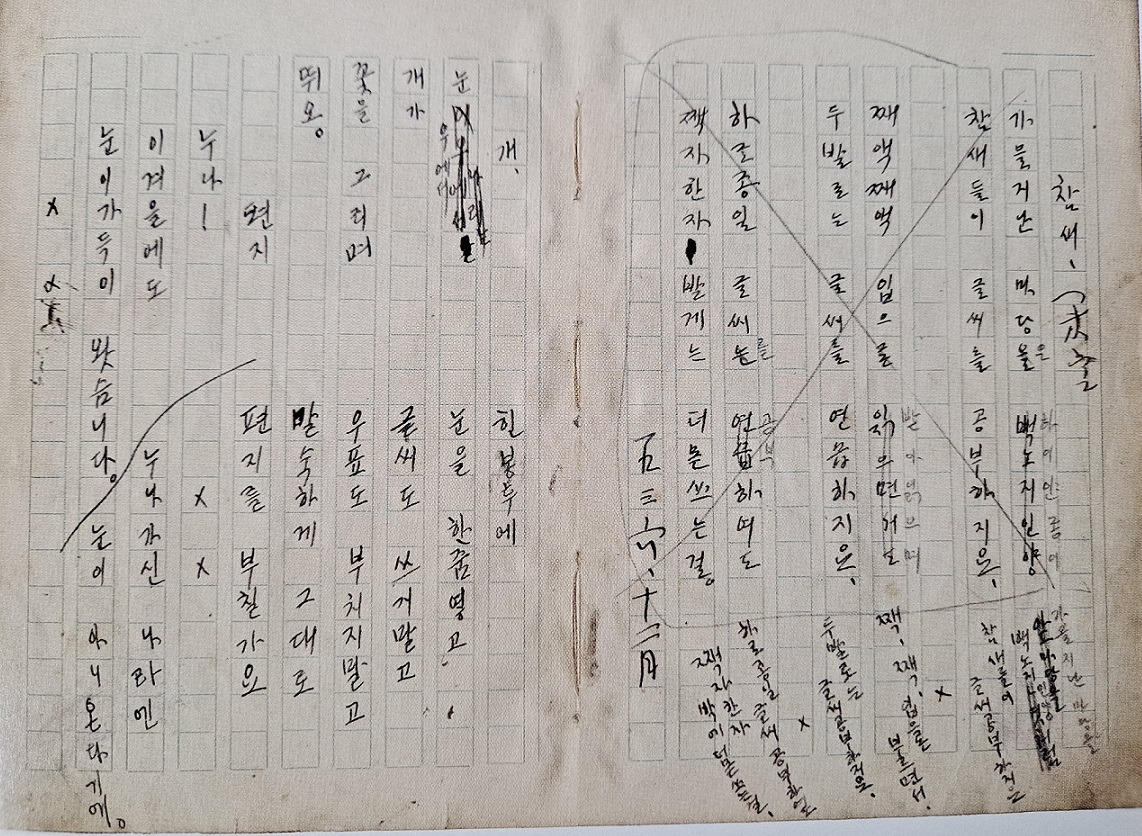 참새、
가을지난 마당을은 백노지인양
하이얀종이
참새들이 글씨를 공부하지요、
째액째액 입으론 읽으면서도
받아읽으며
두발로는 글씨를 연습하지요、
하로종일 글씨를 연습하여도
공부
짹자한자 발게는 더몯쓰는걸。
一九三六、十二月
가을지난 마당을
백노지인양
참새들이 글씨공부하지요
×
짹, 짹, 입으론 부르면서,
두발로는 글씨공부하지요.
×
하로종일 글씨공부하여도
짹자한자 밖에 더몯쓰는걸.
개、
눈 우에서
개가
꽃을 그리며
뛰오。
편지
누나!
이겨울에도
눈이가득이 왓습니다。
× ×
힌봉투에
눈을 한줌옇고
글씨도 쓰지말고
우표도 부치지말고
말숙하게 그대로
편지를 부칠가요
× ×
누나가신 나라엔
눈이 아니온다기에。